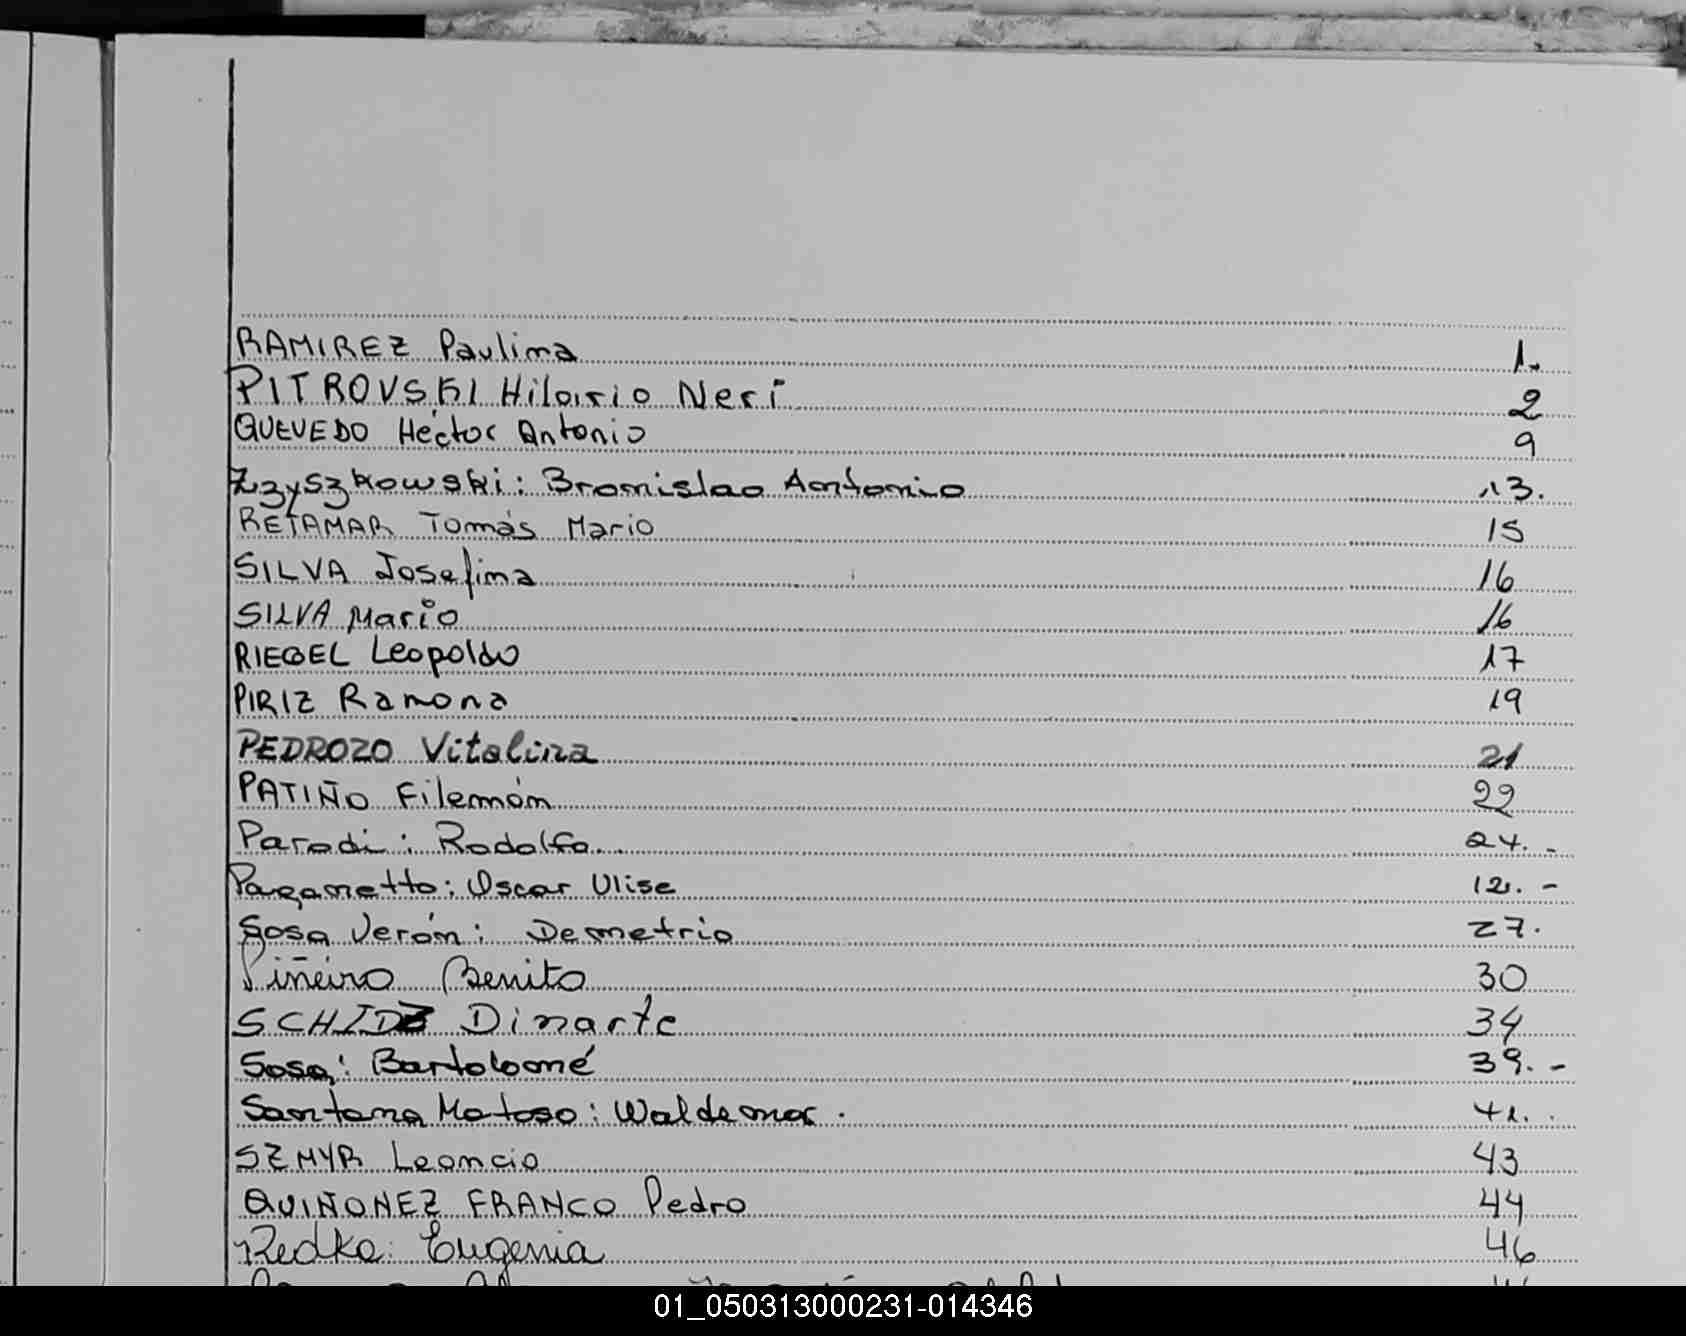 RAMIREZ Paulina 1.
PITROVSKI Hilario Neri 2
QUEVEDO Héctor Antonio 9
Zzyszkowski: Bronislao Antonio 13.
RETAMAR Tomás Mario 15
SILVA Josefina 16
SILVA Mario 16
RIEGEL Leopoldo 17
PIRIZ Ramona 19
PEDROZO Vitalina 21
PATIÑO Filemón 22
Parodi: Rodolfo. 24.-
Paganetto: Oscar Ulise 12.-
Sosa Verón: Demetrio 27.
Piñeiro Benito 30
SCHIDZ Dinarte 34
Sosa: Bartolomé 39.-
Santana Matoso: Waldemar. 41.
SZMYR Leoncio 43
QUIÑONEZ FRANCO Pedro 44
Redko: Eugenia 46
01_050313000231-014346